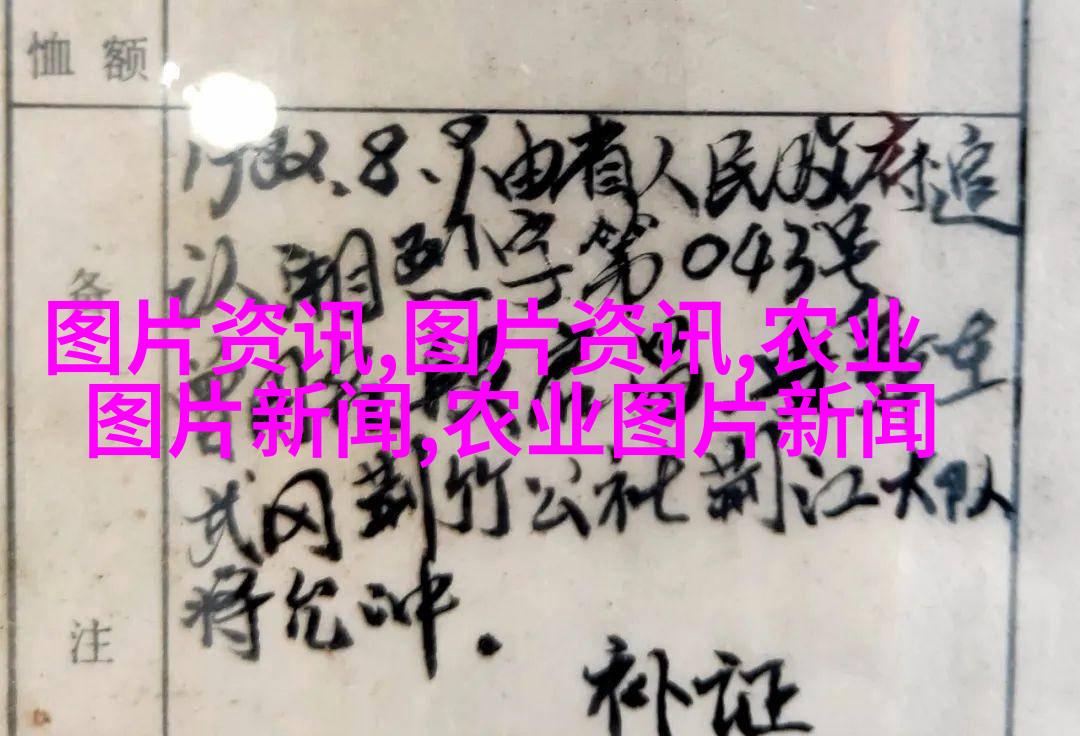 恤额
备
注
1982.8.9由省人民政府追
认湘烈字第043号
图片资讯,图片资讯,农业
图片新闻,农业图片新闻
武冈荆竹公社荆江大队
蒋允冲.
补证